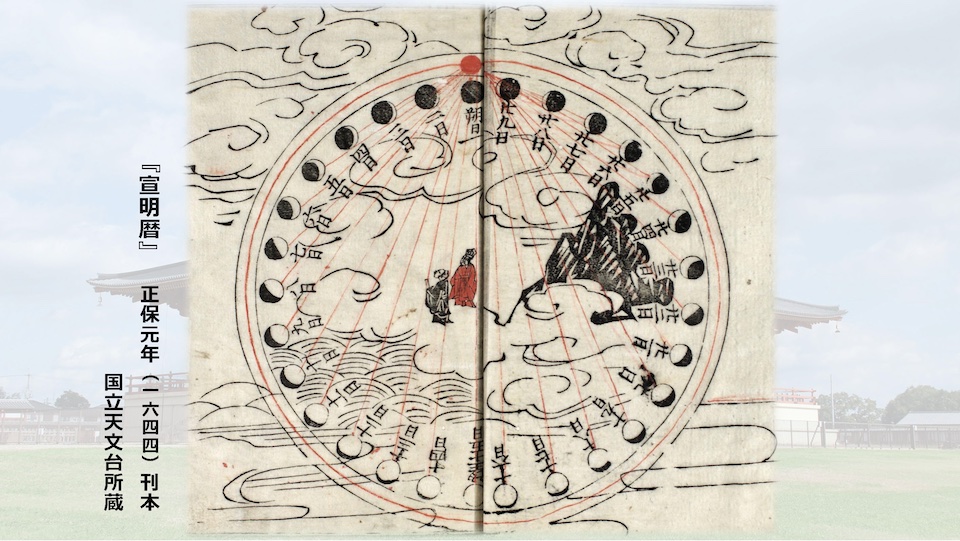 『宣明暦』　正保元年（一六四四）刊本
国立天文台所蔵
朔日
二日
三日
四日
五日
六日
七日
八日
九日
十日
十一日
十二日
十三日
十四日
十六日
十七日
十八日
十九日
廿一日
廿二日
廿三日
廿四日
廿五日
廿六日
廿七日
廿八日
廿九日